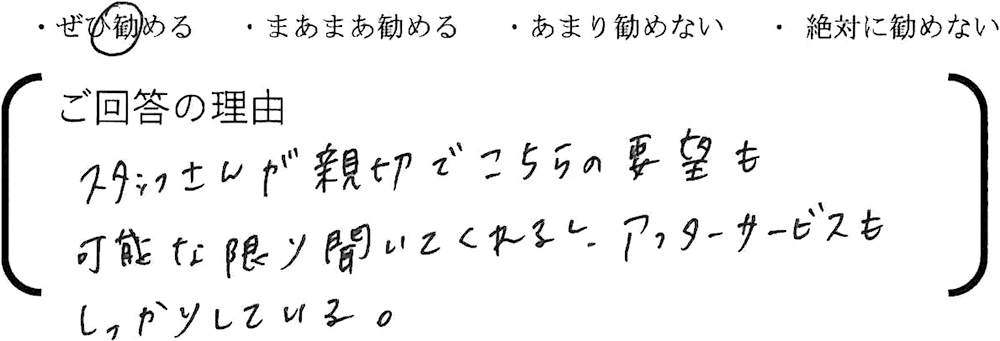 ・ぜひ勧める ・まあまあ勧める ・あまり勧めない ・絶対に勧めない
ご回答の理由
スタッフさんが親切でこちらの要望も
可能な限り聞いてくれるし、アフターサービスも
しっかりしている。